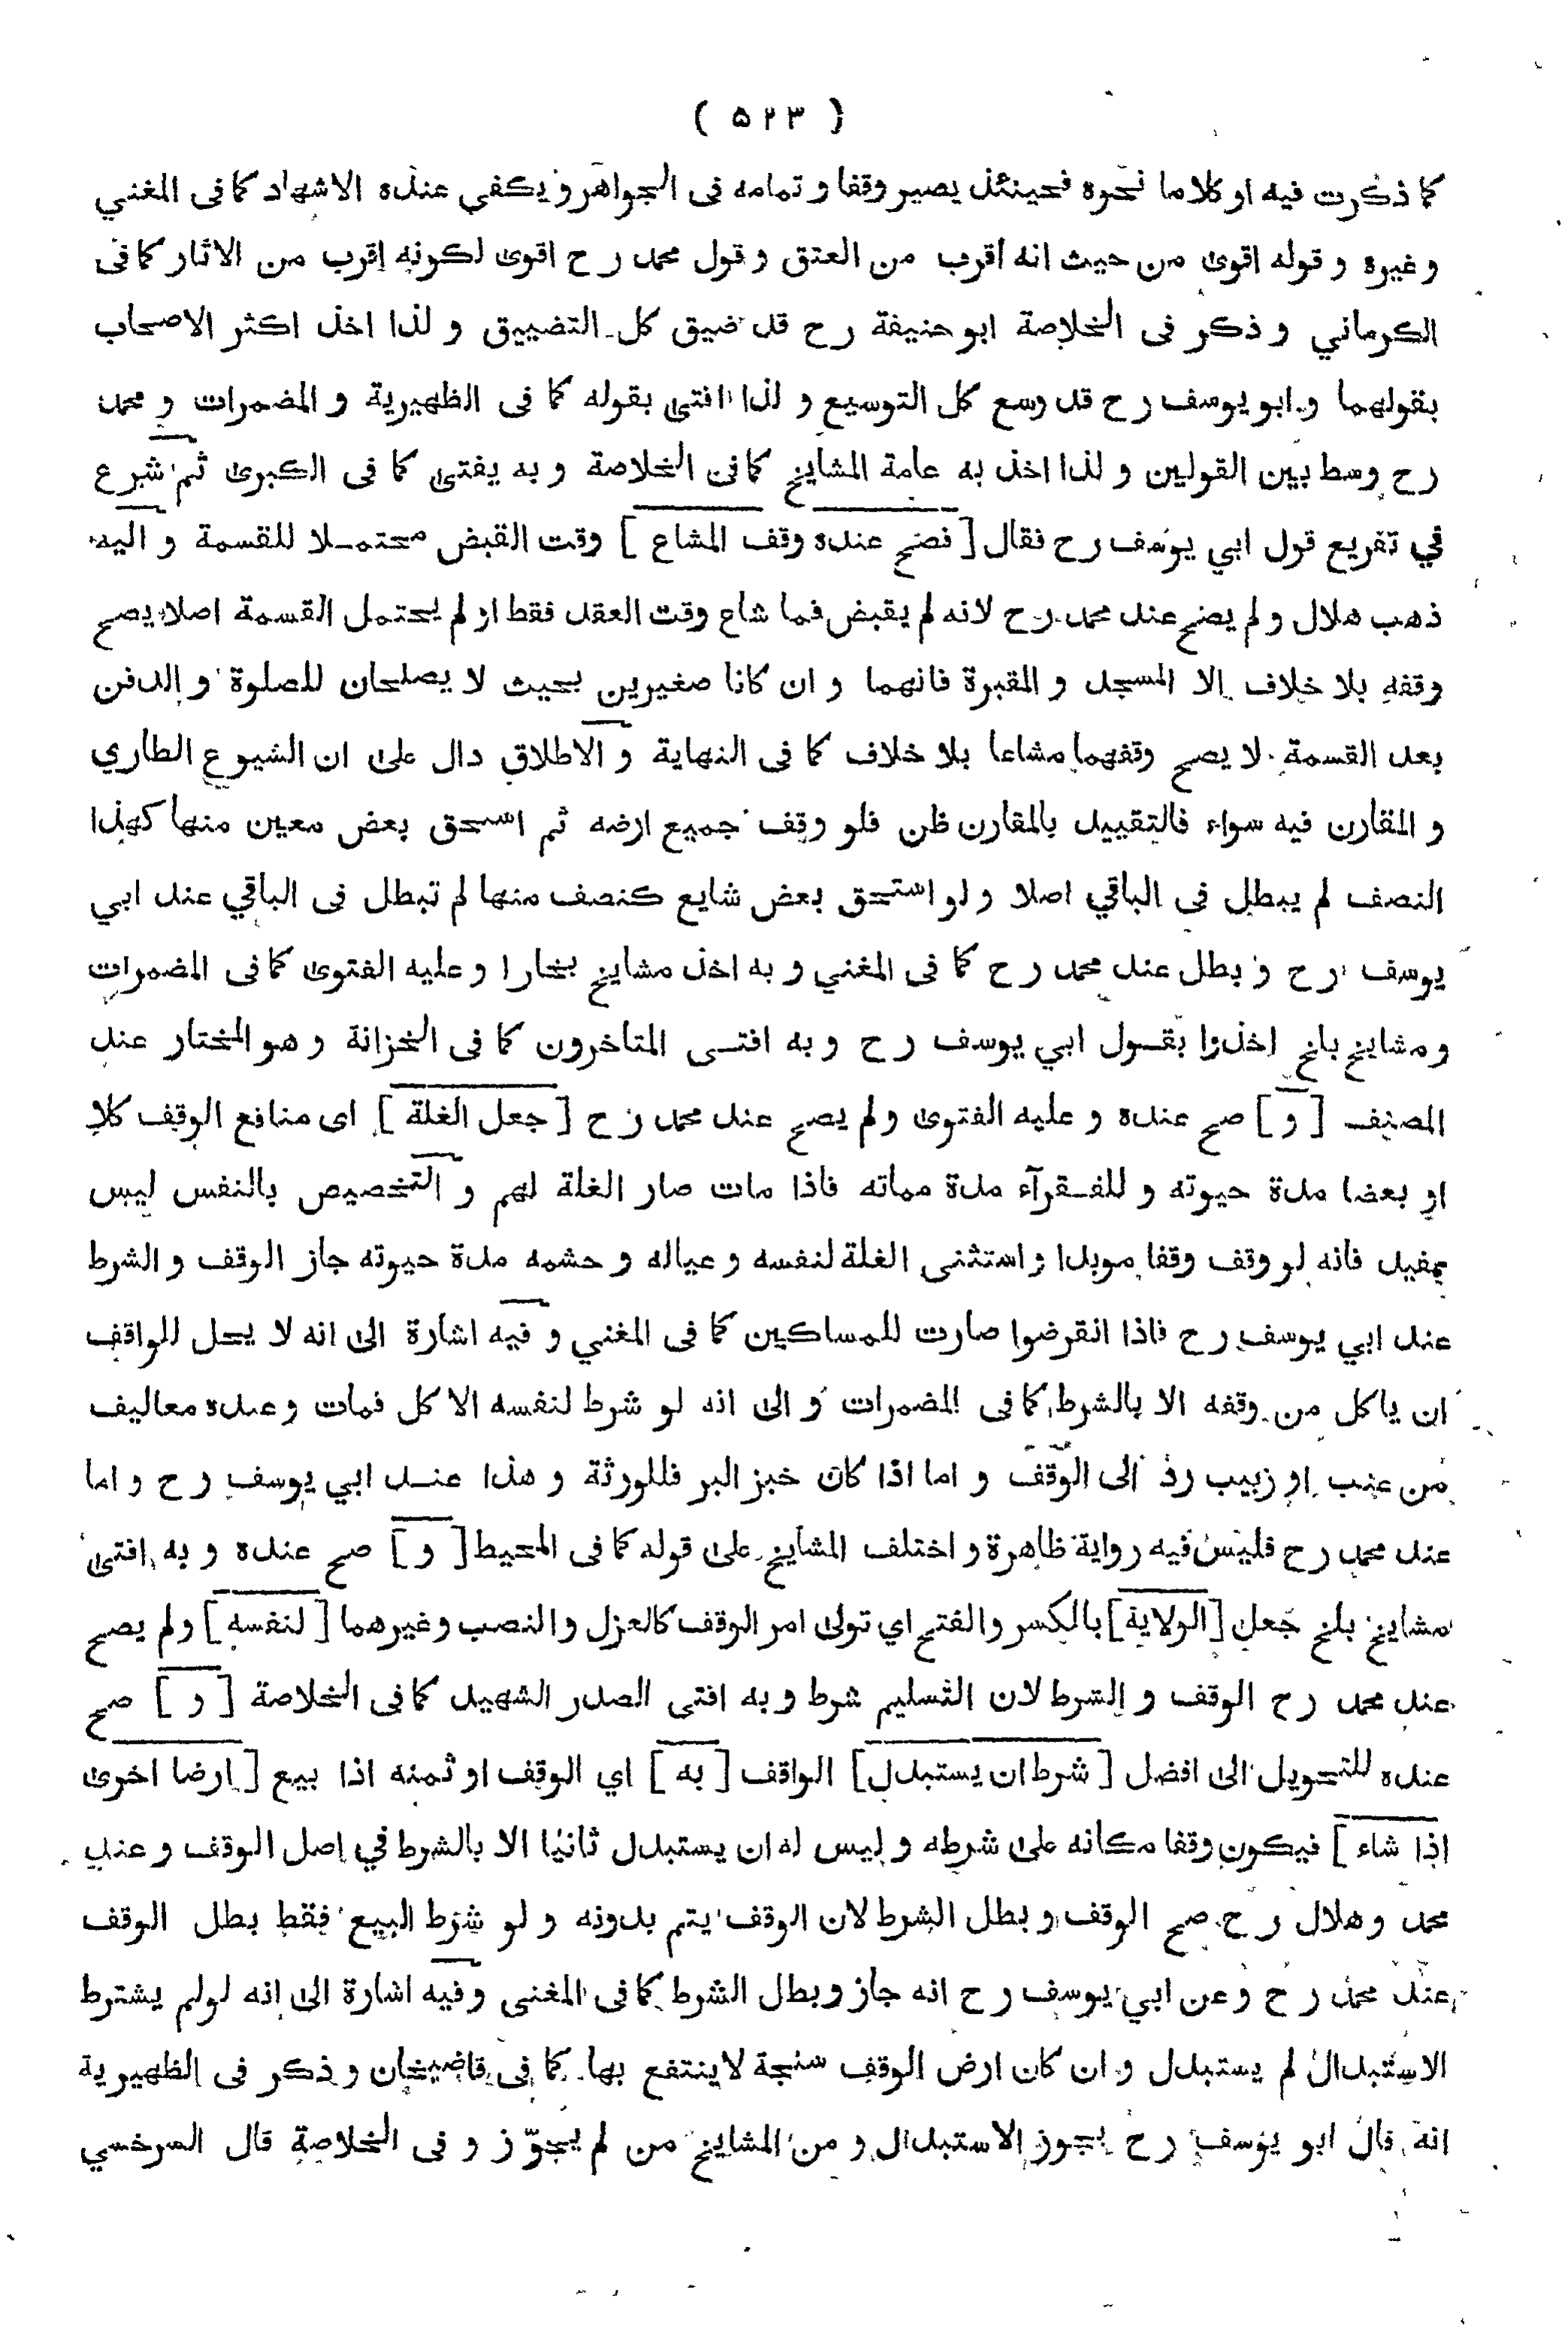 ( ٥٢٣ )
كما ذكرت فيه او كلاما نحوه فحينئذ يصير وقفا و تمامه فى الجواهر و يكفي عنده الاشهاد كما فى المغني
و غيره و قوله اقوى من حيث انه اقرب من العتق و قول محمد رح اقوى لكونه اقرب من الاثار كما فى
الكرماني و ذكر فى الخلاصة ابو حنيفة رح قد ضيق كل التضييق و لذا اخذ اكثر الاصحاب
بقولهما و ابو يوسف رح قد وسع كل التوسيع و لذا افتى بقوله كما فى الظهيرية و المضمرات و محمد
رح وسط بين القولين و لذا اخذ به عامة المشايخ كما فى الخلاصة و به يفتى كما فى الكبرى ثم شرع
في تفريع قول ابي يوسف رح فقال [ فصح عنده وقف المشاع ] وقت القبض محتملا للقسمة و اليه
ذهب هلال و لم يصح عند محمد رح لانه لم يقبض فما شاع وقت العقد فقط او لم يحتمل القسمة اصلا يصح
وقفه بلا خلاف الا المسجد و المقبرة فانهما و ان كانا صغيرين بحيث لا يصلحان للصلوة و الدفن
بعد القسمة لا يصح وقفهما مشاعا بلا خلاف كما فى النهاية و الاطلاق دال على ان الشيوع الطاري
و المقارن فيه سواء فالتقييد بالمقارن ظن فلو وقف جميع ارضه ثم استحق بعض معين منها كهذا
النصف لم يبطل فى الباقي اصلا و لو استحق بعض شايع كنصف منها لم تبطل فى الباقي عند ابي
يوسف رح و بطل عند محمد رح كما فى المغني و به اخذ مشايخ بخارا و عليه الفتوى كما فى المضمرات
و مشايخ بلخ اخذوا بقول ابي يوسف رح و به افتى المتاخرون كما فى الخزانة و هو المختار عند
المصنف [ و ] صح عنده و عليه الفتوى ولم يصح عند محمد رح [ جعل الغلة ] اى منافع الوقف كلا
او بعضا مدة حيوته و للفقرآء مدة مماته فاذا مات صار الغلة لهم و التخصيص بالنفس ليس
بمفيد فانه لو وقف وقفا موبدا و استثنى الغلة لنفسه و عياله و حشمه مدة حيوته جاز الوقف و الشرط
عند ابي يوسف رح فاذا انقرضوا صارت للمساكين كما فى المغني و فيه اشارة الى انه لا يحل للواقف
ان ياكل من وقفه الا بالشرط كما فى المضمرات و الى انه لو شرط لنفسه الاكل فمات و عنده معاليف
من عنب او زبيب رد الى الوقف و اما اذا كان خبز البر فللورثة و هذا عند ابي يوسف رح و اما
عند محمد رح فليس فيه رواية ظاهرة و اختلف المشايخ على قوله كما فى المحيط [ و ] صح عنده و به افتى
مشايخ بلخ جعل [ الولاية ] بالكسر والفتح اي تولى امر الوقف كالعزل و النصب وغيرهما [ لنفسه ] ولم يصح
عند محمد رح الوقف و الشرط لان التسليم شرط و به افتى الصدر الشهيد كما فى الخلاصة [ و ] صح
عنده للتحويل الى افضل [ شرط ان يستبدل ] الواقف [ به ] اي الوقف او ثمنه اذا بيع [ ارضا اخرى
اذا شاء ] فيكون وقفا مكانه على شرطه و ليس له ان يستبدل ثانيا الا بالشرط في اصل الوقف و عند
محمد و هلال رح صح الوقف و بطل الشرط لان الوقف يتم بدونه و لو شرط البيع فقط بطل الوقف
عند محمد رح و عن ابي يوسف رح انه جاز و بطل الشرط كما فى المغنى و فيه اشارة الى انه لولم يشترط
الاستبدال لم يستبدل و ان كان ارض الوقف سنجة لا ينتفع بها كما فى قاضيخان و ذكر فى الظهيرية
انه قال ابو يوسف رح يجوز الاستبدال و من المشايخ من لم يجوّز و فى الخلاصة قال السرخسي